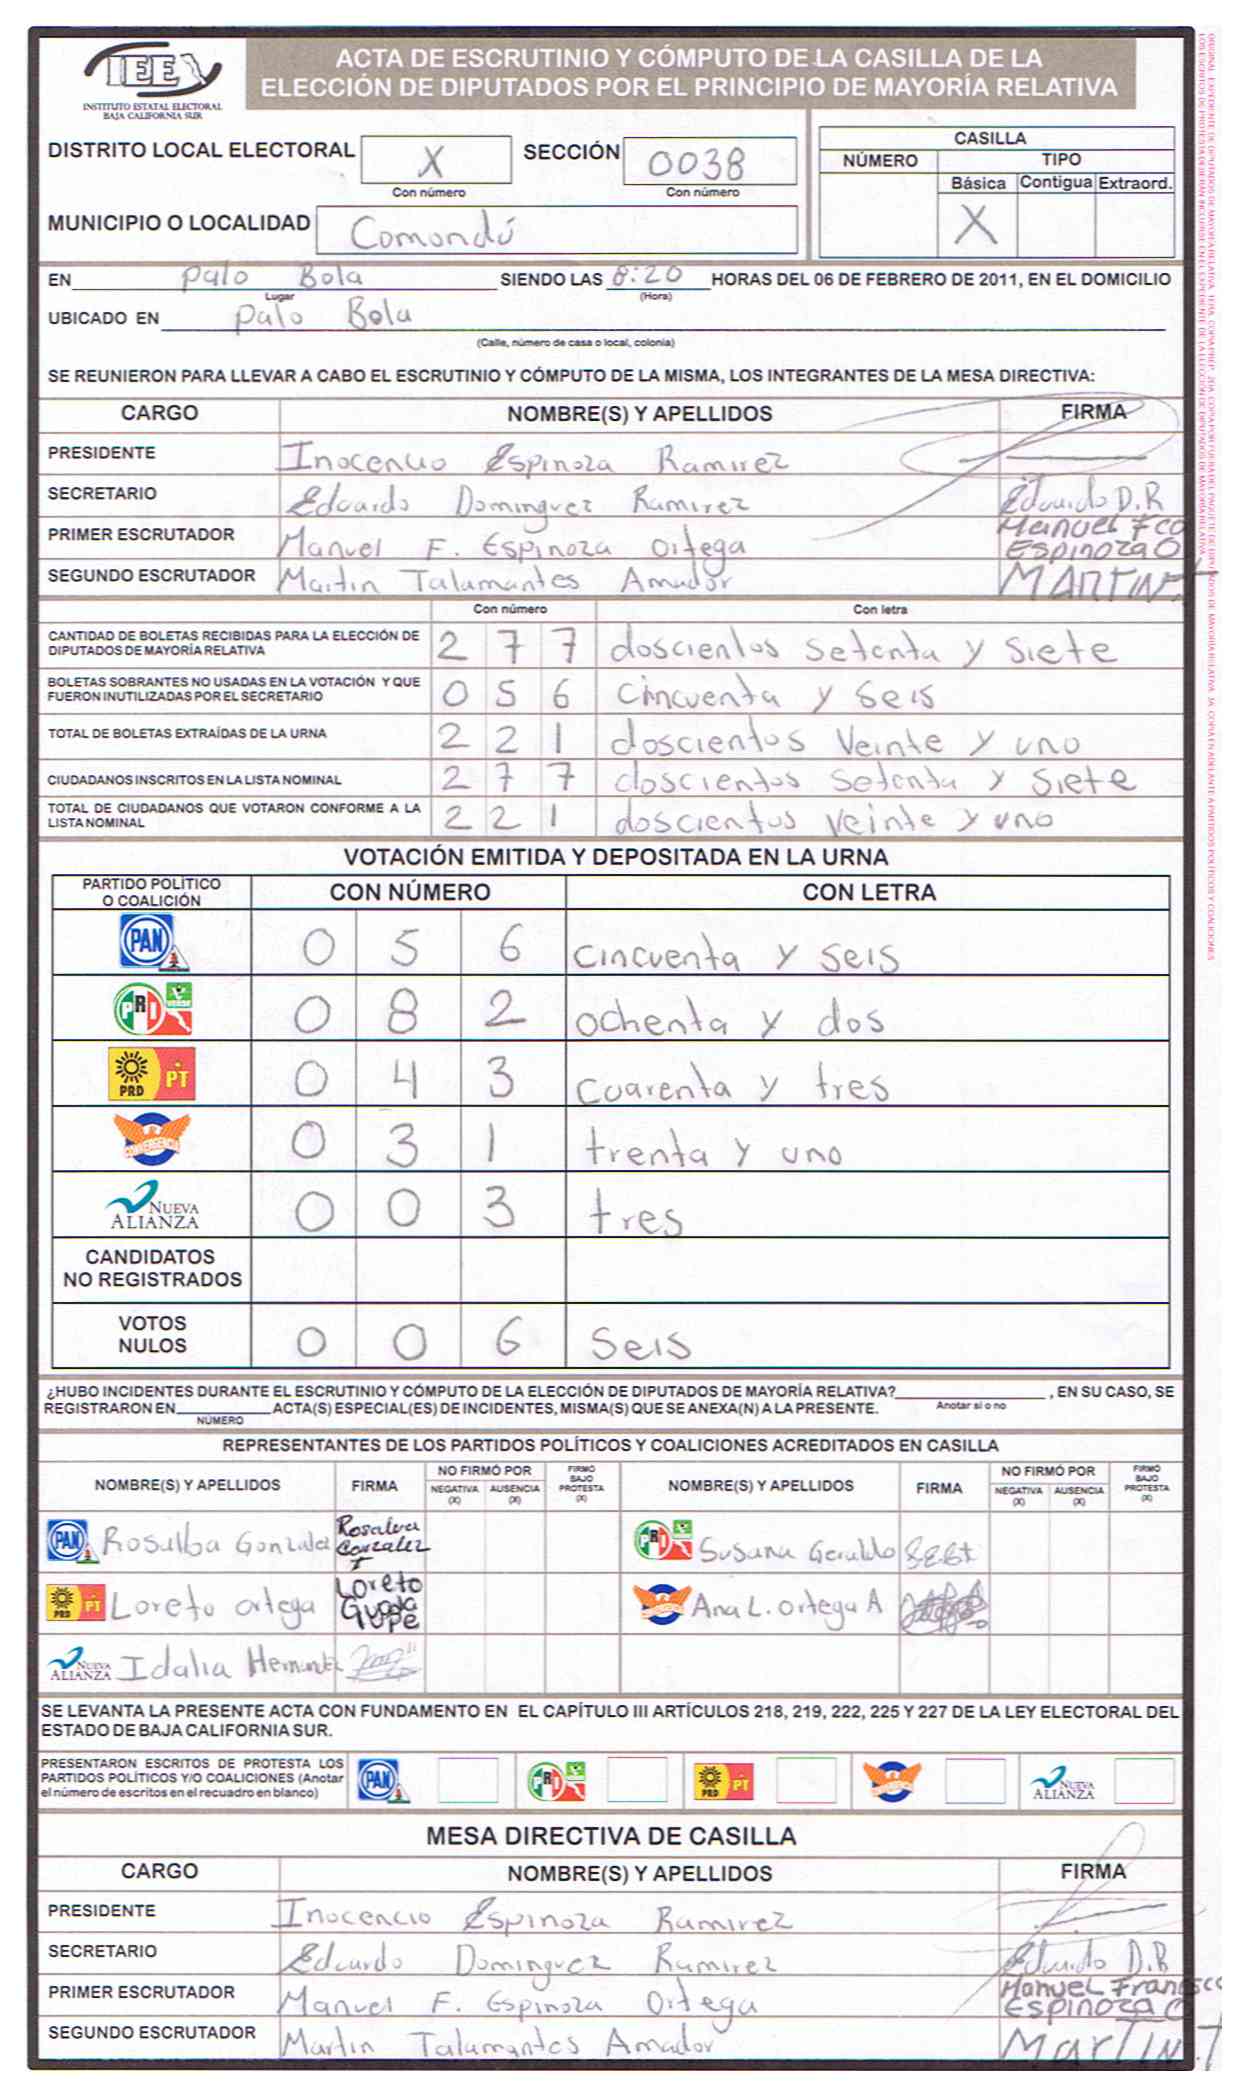 IEE
INSTITUTO ESTATAL ELECTORAL
BAJA CALIFORNIA SUR
ACTA DE ESCRUTINIO Y CÓMPUTO DE LA CASILLA DE LA
ELECCIÓN DE DIPUTADOS POR EL PRINCIPIO DE MAYORÍA RELATIVA
DISTRITO LOCAL ELECTORAL X SECCIÓN 0038
Con número Con número
MUNICIPIO O LOCALIDAD Comondú
CASILLA
NÚMERO TIPO
Básica Contigua Extraord.
X
EN Palo Bola SIENDO LAS 8:20 HORAS DEL 06 DE FEBRERO DE 2011, EN EL DOMICILIO
Lugar (Hora)
UBICADO EN Palo Bola
(Calle, número de casa o local, colonia)
SE REUNIERON PARA LLEVAR A CABO EL ESCRUTINIO Y CÓMPUTO DE LA MISMA, LOS INTEGRANTES DE LA MESA DIRECTIVA:
CARGO NOMBRE(S) Y APELLIDOS FIRMA
PRESIDENTE Inocencio Espinoza Ramirez
SECRETARIO Eduardo Dominguez Ramirez Eduardo D.R
PRIMER ESCRUTADOR Manuel F. Espinoza Ortega Manuel Fco Espinoza O
SEGUNDO ESCRUTADOR Martin Talamantes Amador MARTIN.T
Con número Con letra
CANTIDAD DE BOLETAS RECIBIDAS PARA LA ELECCIÓN DE
DIPUTADOS DE MAYORÍA RELATIVA 2 7 7 doscientos setenta y siete
BOLETAS SOBRANTES NO USADAS EN LA VOTACIÓN Y QUE
FUERON INUTILIZADAS POR EL SECRETARIO 0 5 6 cincuenta y seis
TOTAL DE BOLETAS EXTRAÍDAS DE LA URNA 2 2 1 doscientos veinte y uno
CIUDADANOS INSCRITOS EN LA LISTA NOMINAL 2 7 7 doscientos setenta y siete
TOTAL DE CIUDADANOS QUE VOTARON CONFORME A LA
LISTA NOMINAL 2 2 1 doscientos veinte y uno
VOTACIÓN EMITIDA Y DEPOSITADA EN LA URNA
PARTIDO POLÍTICO
O COALICIÓN CON NÚMERO CON LETRA
PAN 0 5 6 cincuenta y seis
PRI VERDE 0 8 2 ochenta y dos
PRD PT 0 4 3 cuarenta y tres
CONVERGENCIA 0 3 1 trenta y uno
NUEVA ALIANZA 0 0 3 tres
CANDIDATOS
NO REGISTRADOS
VOTOS
NULOS 0 0 6 seis
¿HUBO INCIDENTES DURANTE EL ESCRUTINIO Y CÓMPUTO DE LA ELECCIÓN DE DIPUTADOS DE MAYORÍA RELATIVA? , EN SU CASO, SE
Anotar si o no
REGISTRARON EN ACTA(S) ESPECIAL(ES) DE INCIDENTES, MISMA(S) QUE SE ANEXA(N) A LA PRESENTE.
NÚMERO
REPRESENTANTES DE LOS PARTIDOS POLÍTICOS Y COALICIONES ACREDITADOS EN CASILLA
NOMBRE(S) Y APELLIDOS FIRMA NO FIRMÓ POR NEGATIVA (X) AUSENCIA (X) FIRMÓ BAJO PROTESTA (X) NOMBRE(S) Y APELLIDOS FIRMA NO FIRMÓ POR NEGATIVA (X) AUSENCIA (X) FIRMÓ BAJO PROTESTA (X)
PAN Rosalba Gonzalez Rosalva Gonzalez T PRI VERDE Susana Geraldo
PRD PT Loreto ortega Loreto Guada Lupe CONVERGENCIA Ana L. Ortega A
NUEVA ALIANZA Idalia Hernandez
SE LEVANTA LA PRESENTE ACTA CON FUNDAMENTO EN EL CAPÍTULO III ARTÍCULOS 218, 219, 222, 225 Y 227 DE LA LEY ELECTORAL DEL
ESTADO DE BAJA CALIFORNIA SUR.
PRESENTARON ESCRITOS DE PROTESTA LOS
PARTIDOS POLÍTICOS Y/O COALICIONES (Anotar
el número de escritos en el recuadro en blanco)
PAN PRI VERDE PRD PT CONVERGENCIA NUEVA ALIANZA
MESA DIRECTIVA DE CASILLA
CARGO NOMBRE(S) Y APELLIDOS FIRMA
PRESIDENTE Inocencio Espinoza Ramirez
SECRETARIO Eduardo Dominguez Ramirez Eduardo D.R
PRIMER ESCRUTADOR Manuel F. Espinoza Ortega Manuel Francisco Espinoza O
SEGUNDO ESCRUTADOR Martin Talamantes Amador MARTIN.T